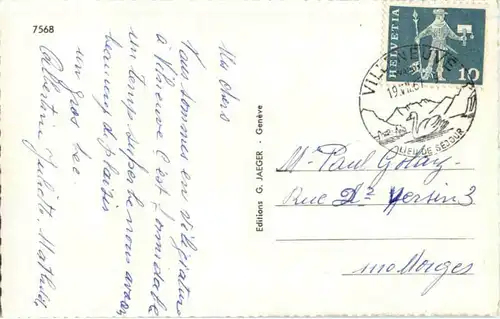 7568
Mes chers
Nous sommes en villégiature
à Villeneuve C'est formidable
un temps superbe nous avons
beaucoup de plaisir
un gros bec.
Albertine Juliette Mathilde
Editions G. JAEGER - Genève
HELVETIA
10
VILLENEUVE
LIEU DE SEJOUR
Mr Paul Golay
Rue Dr Yersin 3
1110 Morges